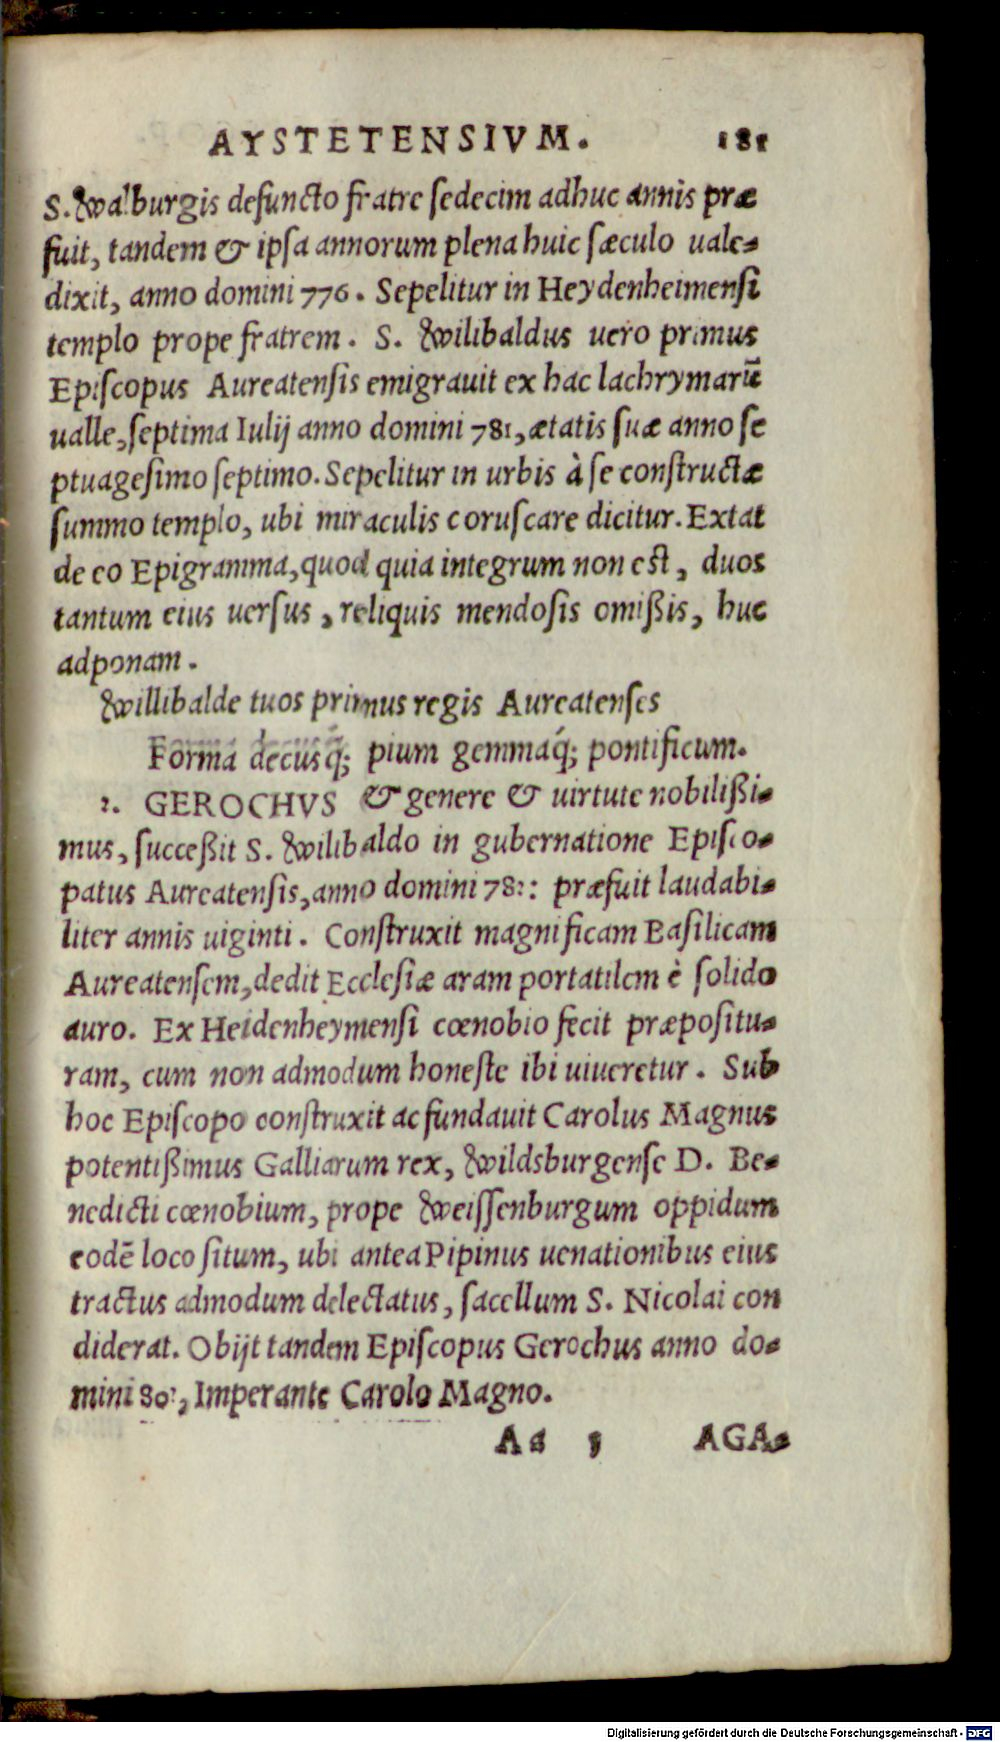 AYSTETENSIVM. 181
S. Walburgis defuncto fratre sedecim adhuc annis præ
fuit, tandem & ipsa annorum plena huic sæculo uale-
dixit, anno domini 776. Sepelitur in Heydenheimensi
templo prope fratrem. S. Wilibaldus uero primus
Episcopus Aureatensis emigrauit ex hac lachrymarū
ualle, septima Iulij anno domini 781, ætatis suæ anno se
ptuagesimo septimo. Sepelitur in urbis à se constructæ
summo templo, ubi miraculis coruscare dicitur. Extat
de eo Epigramma, quod quia integrum non est, duos
tantum eius uersus, reliquis mendosis omißis, huc
adponam.
Willibalde tuos primus regis Aureatenses
Forma decusq́; pium gemmaq́; pontificum.
2. GEROCHVS & genere & uirtute nobilißi-
mus, succeßit S. Wilibaldo in gubernatione Episco-
patus Aureatensis, anno domini : præfuit laudabi-
liter annis uiginti. Construxit magnificam Basilicam
Aureatensem, dedit Ecclesiæ aram portatilem è solido
auro. Ex Heidenheymensi cœnobio fecit præpositu-
ram, cum non admodum honeste ibi uiueretur. Sub
hoc Episcopo construxit ac fundauit Carolus Magnus
potentißimus Galliarum rex, Wildsburgense D. Be-
nedicti cœnobium, prope Weissenburgum oppidum
eodē loco situm, ubi antea Pipinus uenationibus eius
tractus admodum delectatus, sacellum S. Nicolai con
diderat. Obijt tandem Episcopus Gerochus anno do-
mini , Imperante Carolo Magno.
Aa 3 AGA-
Digitalisierung gefördert durch die Deutsche Forschungsgemeinschaft - DFG